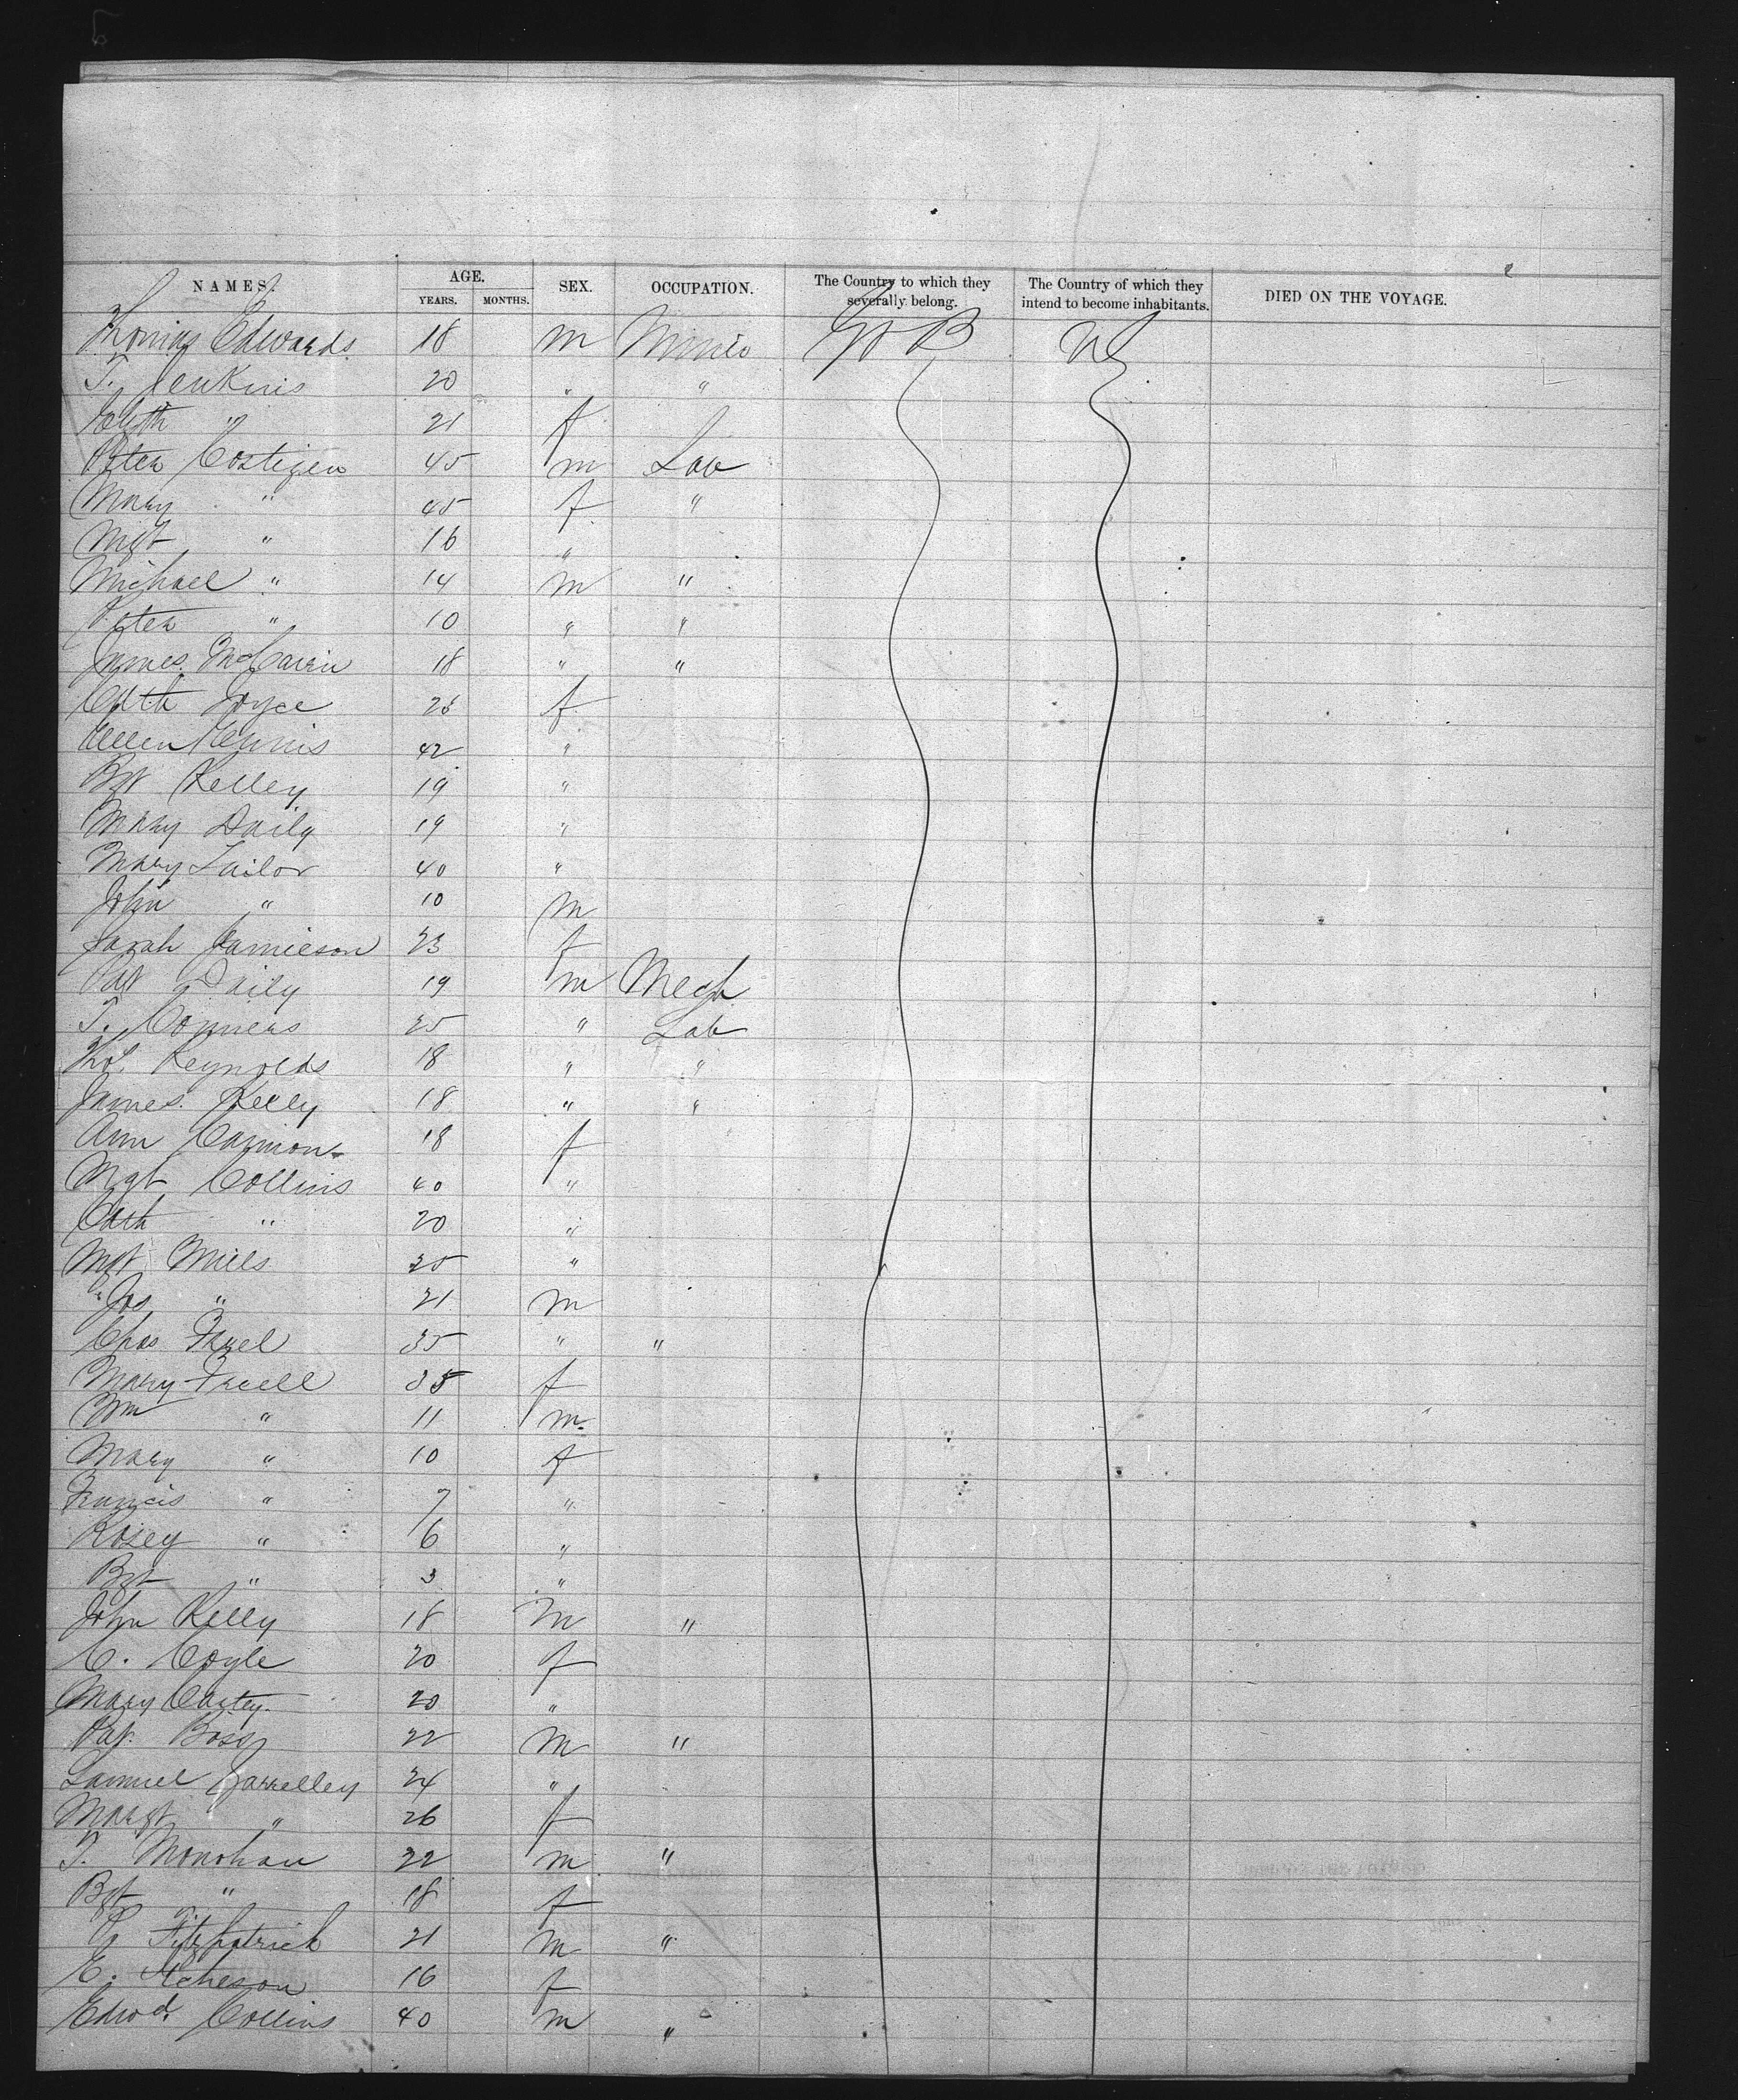 NAMES. AGE. SEX. OCCUPATION. The Country to which they severally belong. The Country of which they intend to become inhabitants. DIED ON THE VOYAGE.
YEARS. MONTHS.
Thomas Edwards 18 m G B
T. Jenkins 20 " "
" 21 f
Peter Costigen 45 m Lab
Mary " 45 f "
Mgt " 16 "
Michael " 14 m "
Peter " 10 " "
James 18 " "
Cath Joyce 23 f
Ellen 42 "
Bgt Kelley 19 "
Mary Daily 19 "
Mary Tailor 40 "
John " 10 m
Sarah Jamieson 23 f
Pat Daily 19 m Mech
T. Conners 25 " Lab
Thos. Reynolds 18 " "
James Kelly 18 " "
Ann 18 f
Mgt Collins 40 "
Cath " 20 "
Mgt Mills 25 "
Jos " 21 m
Chas 35 " "
Mary Freell 35 f
Wm " 11 m
Mary " 10 f
Francis " 7 "
Rosey " 6 "
Bgt " 3 "
John Kelly 18 m "
C. Coyle 20 f
Mary Cartey 20 "
Pat. 22 m "
Samuel 24 "
Margt " 26 f
T. Monohan 22 m "
Bgt " 18 f
Fitzpatrick 21 m "
E. Acheson 16 f
Edwd. Collins 40 m "